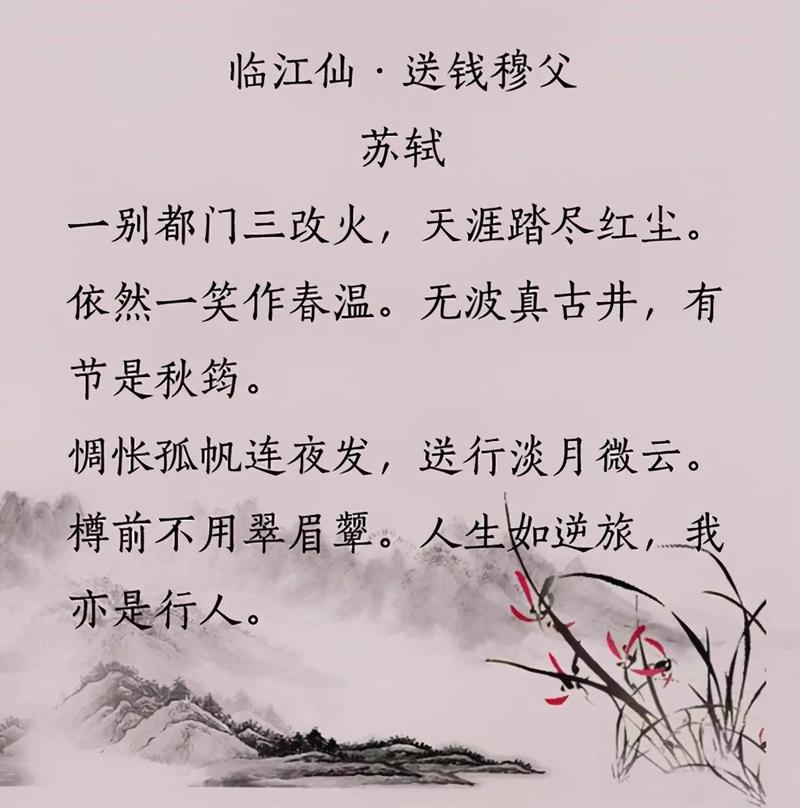 临江仙·送钱穆父
苏轼
一别都门三改火，天涯踏尽红尘。
依然一笑作春温。无波真古井，有
节是秋筠。
惆怅孤帆连夜发，送行淡月微云。
樽前不用翠眉颦。人生如逆旅，我
亦是行人。